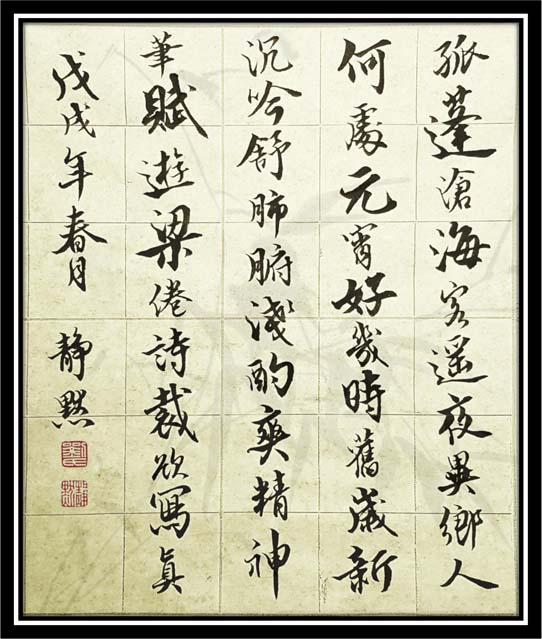 孤蓬滄海客遥夜異鄉人
何處元宵好幾時舊歲新
沉吟舒肺腑淺酌爽精神
華賦遊梁倦詩裁欲寫真
戊戌年春月 静默